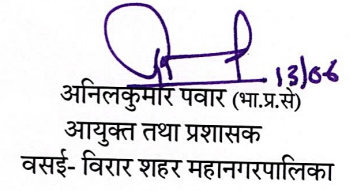 13/06
अनिलकुमार पवार (भा.प्र.से)
आयुक्त तथा प्रशासक
वसई- विरार शहर महानगरपालिका